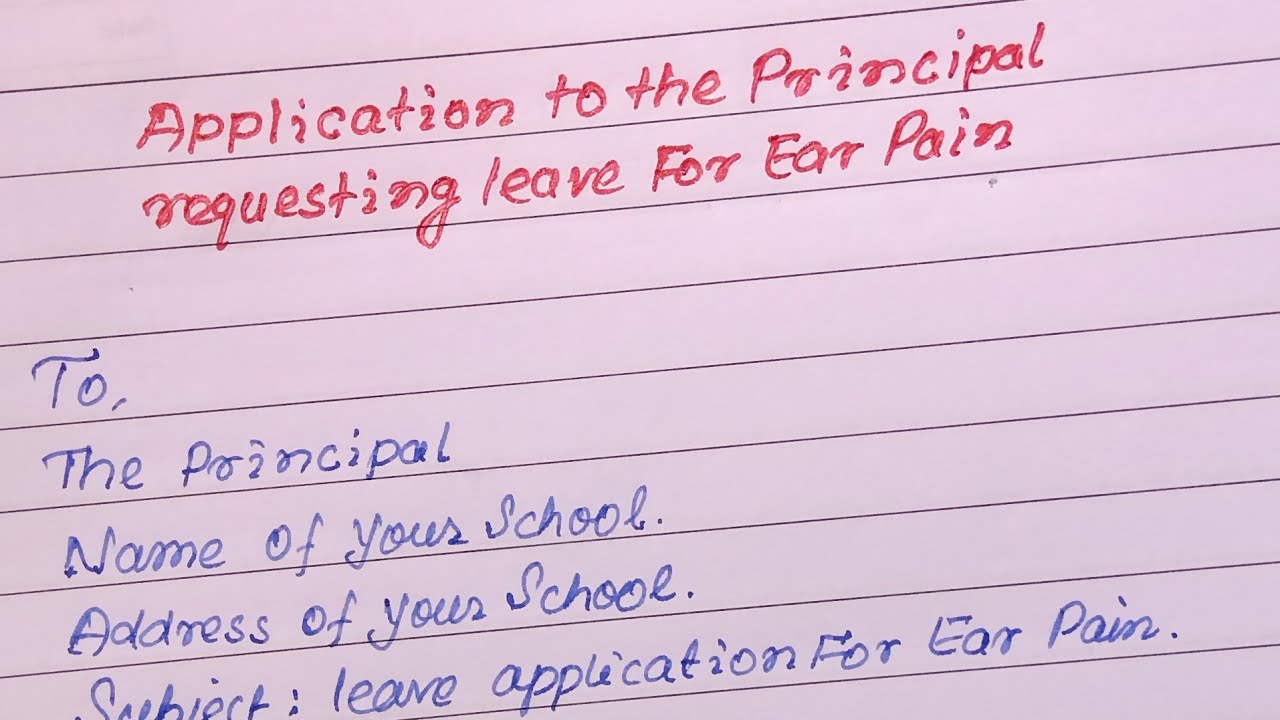 Application to the Principal
requesting leave For Ear Pain
To,
The Principal
Name of your School.
Address of your School.
Subject: leave application For Ear Pain.